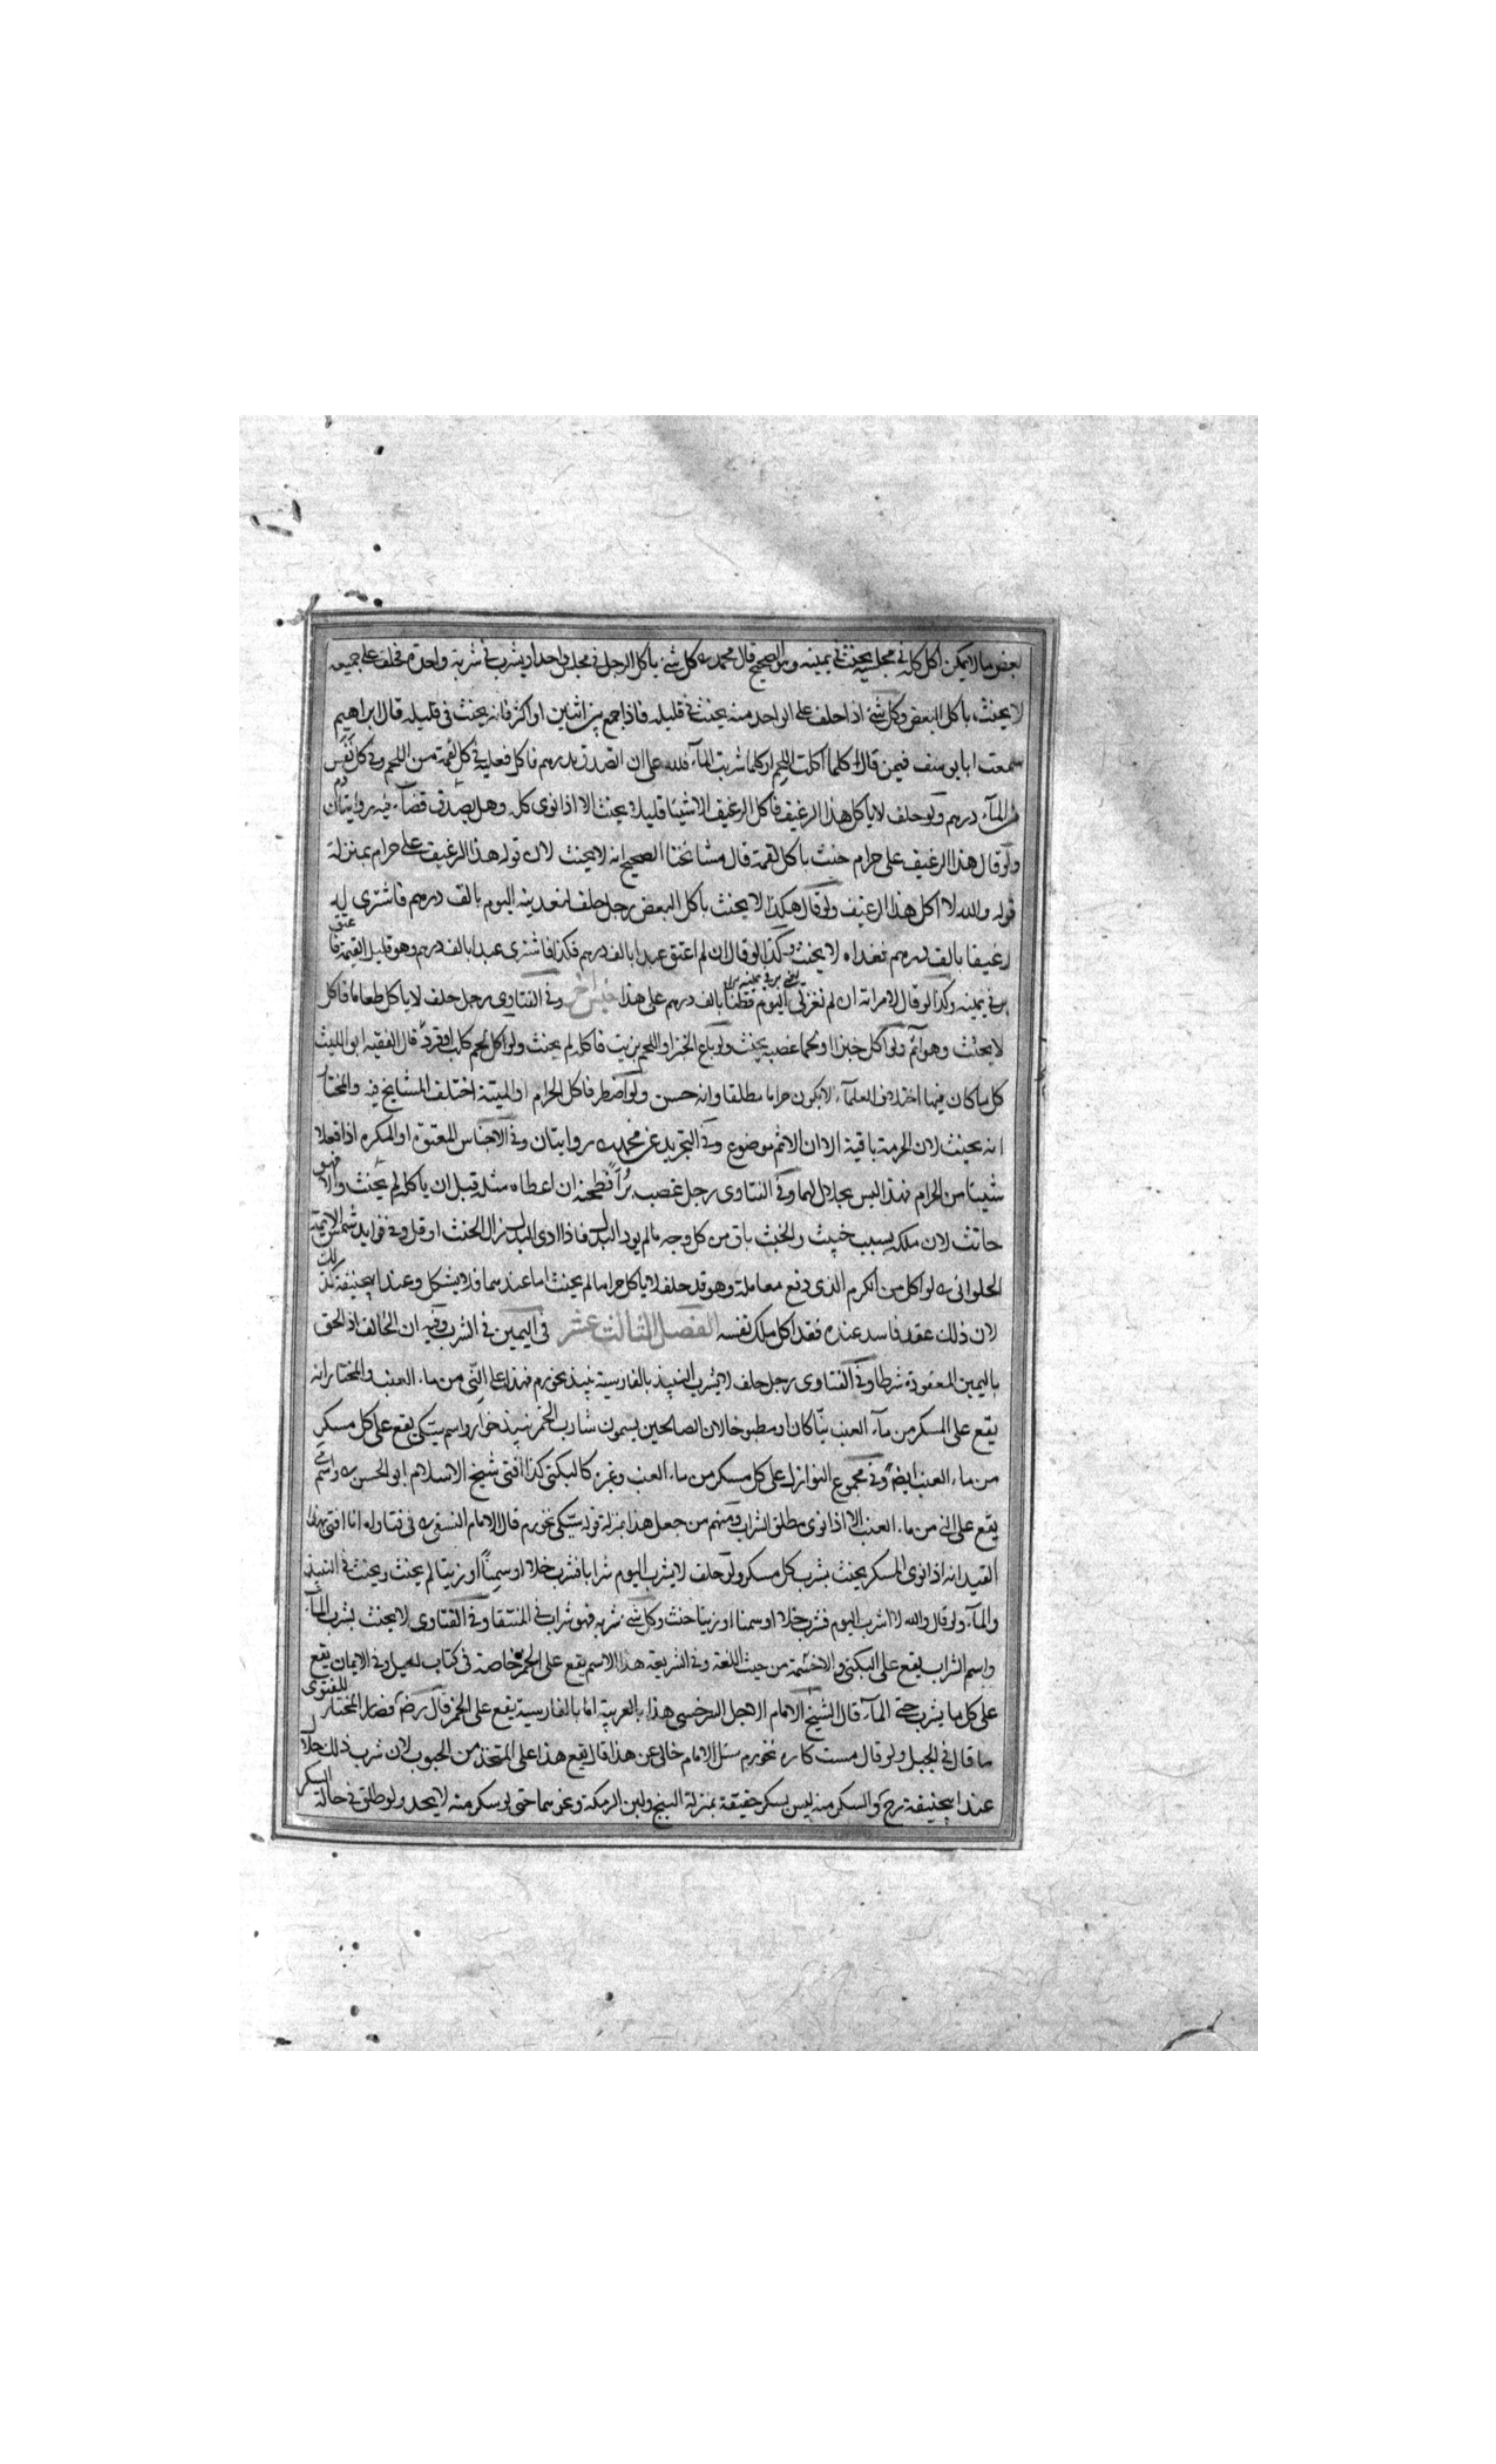 بعض ما لا يمكن اكل كله في مجلسه يحنث في يمينه وهو الصحيح قال محمد رح كل شئ ياكل الرجل في مجلس واحد او يشرب في شربة واحدة فحلف على جميعه
لا يحنث باكل البعض وكل شئ اذا حلف على الواحد منه يحنث في قليله فاذا جمع بين اثنين او اكثر فانه يحنث في قليله قال ابراهيم
سمعت ابا يوسف فيمن قال كلما اكلت اللحم او كلما شربت المآء فلله على ان اتصدق بدرهم فاكل فعليه في كل لقمة من اللحم وفي كل نفس
من المآء درهم ولو حلف لا ياكل هذا الرغيف فاكل الرغيف الا شيئا قليلا يحنث الا اذا نوى كله وهل يصدق قضآء فيه روايتان
ولو قال هذا الرغيف على حرام حنث باكل لقمة قال مشائخنا الصحيح انه لا يحنث لان قوله هذا الرغيف على حرام بمنزلة
قوله والله لا اكل هذا الرغيف ولو قال هكذا لا يحنث باكل البعض رجل حلف ليغدينه اليوم بالف درهم فاشترى له
رغيفا بالف درهم فغداه لا يحنث وكذا لو قال ان لم اعتق عبدا بالف درهم فكذا فاشترى عبدا بالف درهم وهو قليل القيمة فاعتق
بر في يمينه وكذا لو قال لامراته ان لم تغزلي اليوم قطنا بالف درهم على هذا جنس اخر وفي الفتاوى رجل حلف لا ياكل طعاما فاكل
لا يحنث وهو آثم ولو اكل خبزا او لحما غصبه يحنث ولو باع الخبز او اللحم بزيت فاكله لم يحنث ولو اكل لحم كلب او قرد قال الفقيه ابو الليث
كل ما كان فيها اختلاف العلمآء لا يكون حراما مطلقا وانه حسن ولو اضطر فاكل الحرام او الميتة اختلف المشايخ فيه والمختار
انه يحنث لان الحرمة باقية الا ان الاثم موضوع وفي التجريد عن محمد رح روايتان وفي الاجناس للمعتوه او المكره اذا فعلا
شيئا من الحرام فهذا ليس بحلال لهما وفي الفتاوى رجل غصب برا فطحنه ان اعطاه مثله قبل ان ياكله لم يحنث والا فهو
حانث لان ملكه بسبب خبيث والخبث باق من كل وجه ما لم يود البدل فاذا ادى البدل زال الحنث او قل وفي فوايد شمس الائمة
الحلواني رح لو اكل من الكرم الذي دفع معاملة وهو قد حلف لا ياكل حراما لم يحنث اما عندهما فلا يشكل وعند ابيحنيفة كذلك
لان ذلك عقد فاسد عنده فقد اكل ملك نفسه الفصل الثالث عشر في اليمين في الشرب وفيه ان الحالف اذا الحق
باليمين المعقودة شرطا وفي الفتاوى رجل حلف لا يشرب النبيذ بالفارسية نبيذ نخورم فهذا على الني من ماء العنب والمختار انه
يقع على المسكر من مآء العنب نيّا كان او مطبوخا لان الصالحين يسمون شارب الخمر نبيذ خوار واسم سيكي يقع على كل مسكر
من ماء العنب ايضا وفي مجموع النوازل على كل مسكر من ماء العنب وغيره كالبكني كذا افتى شيخ الاسلام ابو الحسن رح واسم
يقع على الني من ماء العنب الا اذا نوى مطلق الشراب ومنهم من جعل هذا بمنزلة قوله سيكي نخورم قال الامام النسفي رح في فتاواه انا افتي بهذا
القيد انه اذا نوى المسكر يحنث بشرب كل مسكر ولو حلف لا يشرب اليوم شرابا فشرب خلا او سمنا او زيتا لم يحنث ويحنث في النبيذ
والمآء ولو قال والله لا اشرب اليوم فشرب خلا او سمنا او زيتا حنث وكل شئ شربه فهو شراب في المنتقا وفي الفتاوى لا يحنث بشرب المآء
واسم الشراب يقع على البكني والاخسمة من حيث اللغة وفي الشريعة هذا الاسم يقع على الخمر خاصة في كتاب الحيل وفي الايمان يقع
على كل ما يشرب حتى المآء قال الشيخ الامام الاجل السرخسي هذا بالعربية اما بالفارسية يقع على الخمر قال رض فصار المختار للفتوى
ما قال في الحيل ولو قال مست كاره نخورم سئل الامام خالي عن هذا قال يقع هذا على المتخذ من الحبوب لان شرب ذلك حلال
عند ابيحنيفة رح والسكر منه ليس بسكر حقيقة بمنزلة البنج ولبن الرمكة ونحوهما حتى لو سكر منه لا يحد ولو طلق في حالة السكر